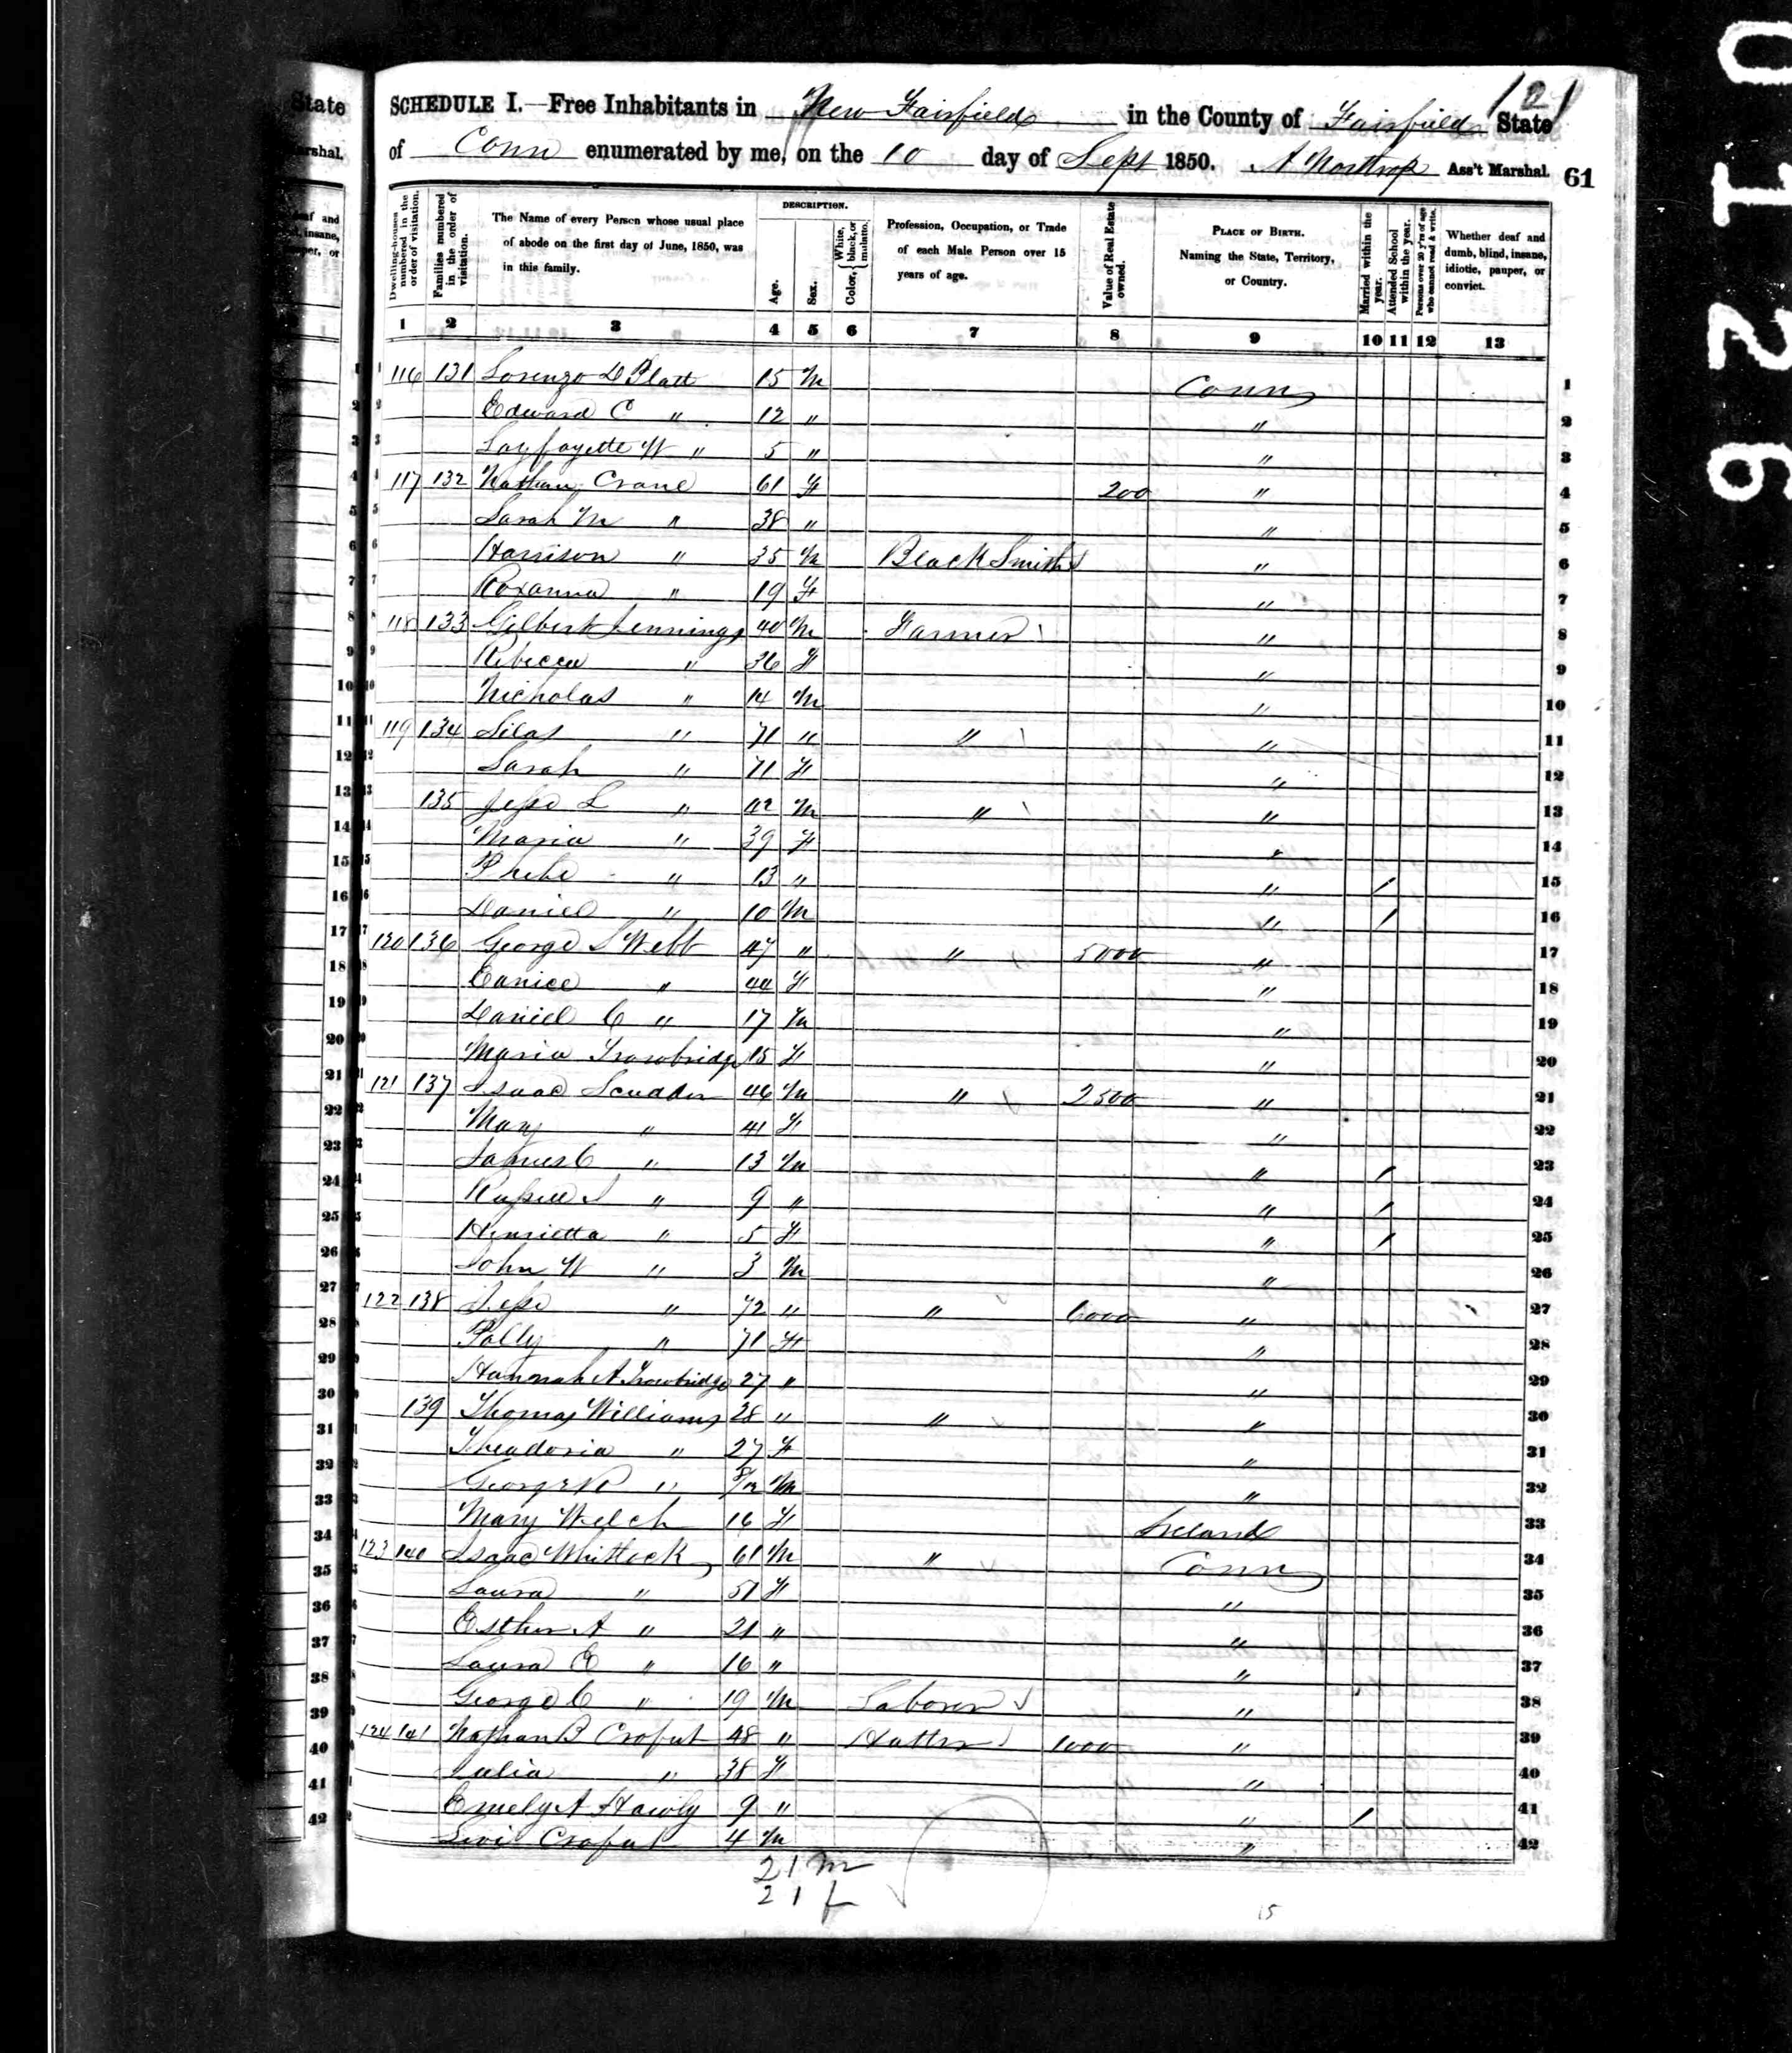 0126
121
State
SCHEDULE I.—Free Inhabitants in New Fairfield in the County of Fairfield State
Marshal.
of Conn enumerated by me, on the 10 day of Sept 1850. A Northrop Ass't Marshal. 61
Dwelling-houses numbered in the order of visitation.
Families numbered in the order of visitation.
The Name of every Person whose usual place of abode on the first day of June, 1850, was in this family.
DESCRIPTION.
Age.
Sex.
Color, { White, black, or mulatto.
Profession, Occupation, or Trade of each Male Person over 15 years of age.
Value of Real Estate owned.
PLACE OF BIRTH. Naming the State, Territory, or Country.
Married within the year.
Attended School within the year.
Persons over 20 y'rs of age who cannot read & write.
Whether deaf and dumb, blind, insane, idiotic, pauper, or convict.
1 2 3 4 5 6 7 8 9 10 11 12 13
1 116 131 Lorenzo D Platt 15 M Conn 1
2 Edward C " 12 " " 2
3 Layfayette W " 5 " " 3
4 117 132 Nathan Crane 61 F 200 " 4
5 Sarah M " 38 " " 5
6 Harrison " 35 M Black Smith " 6
7 Roxanna " 19 F " 7
8 118 133 Gilbert Jennings 40 M Farmer " 8
9 Rebecca " 36 F " 9
10 Nicholas " 14 M " 10
11 119 134 Silas " 71 " " " 11
12 Sarah " 71 F " 12
13 135 Jesse L " 42 M " " 13
14 Maria " 39 F " 14
15 Phebe " 13 " " / 15
16 Daniel " 10 M " / 16
17 120 136 George S Webb 47 " " 5000 " 17
18 Eunice " 44 F " 18
19 Daniel C " 17 M " 19
20 Maria Trowbridge 15 F " 20
21 121 137 Isaac Scudder 46 M " 2500 " 21
22 Mary " 41 F " 22
23 James C " 13 M " / 23
24 Russell S " 9 " " / 24
25 Henrietta " 5 F " / 25
26 John W " 3 M " 26
27 122 138 Jesse " 72 " " 6000 " 27
28 Polly " 71 F " 28
29 Hannah A Trowbridge 27 " " 29
30 139 Thomas Williams 28 " " " 30
31 Theadoria " 27 F " 31
32 George " 8/12 M " 32
33 Mary Welch 16 F Ireland 33
34 123 140 Isaac Whitlock 61 M " Conn 34
35 Laura " 51 F " 35
36 Esther A " 21 " " 36
37 Laura E " 16 " " 37
38 George C " 19 M Laborer " 38
39 124 141 Nathan B Crofut 48 " Hatter 1000 " 39
40 Julia " 38 F " 40
41 Emely A Hawly 9 " " / 41
42 Levi Crofut 4 M " 42
21 m
21 f
15